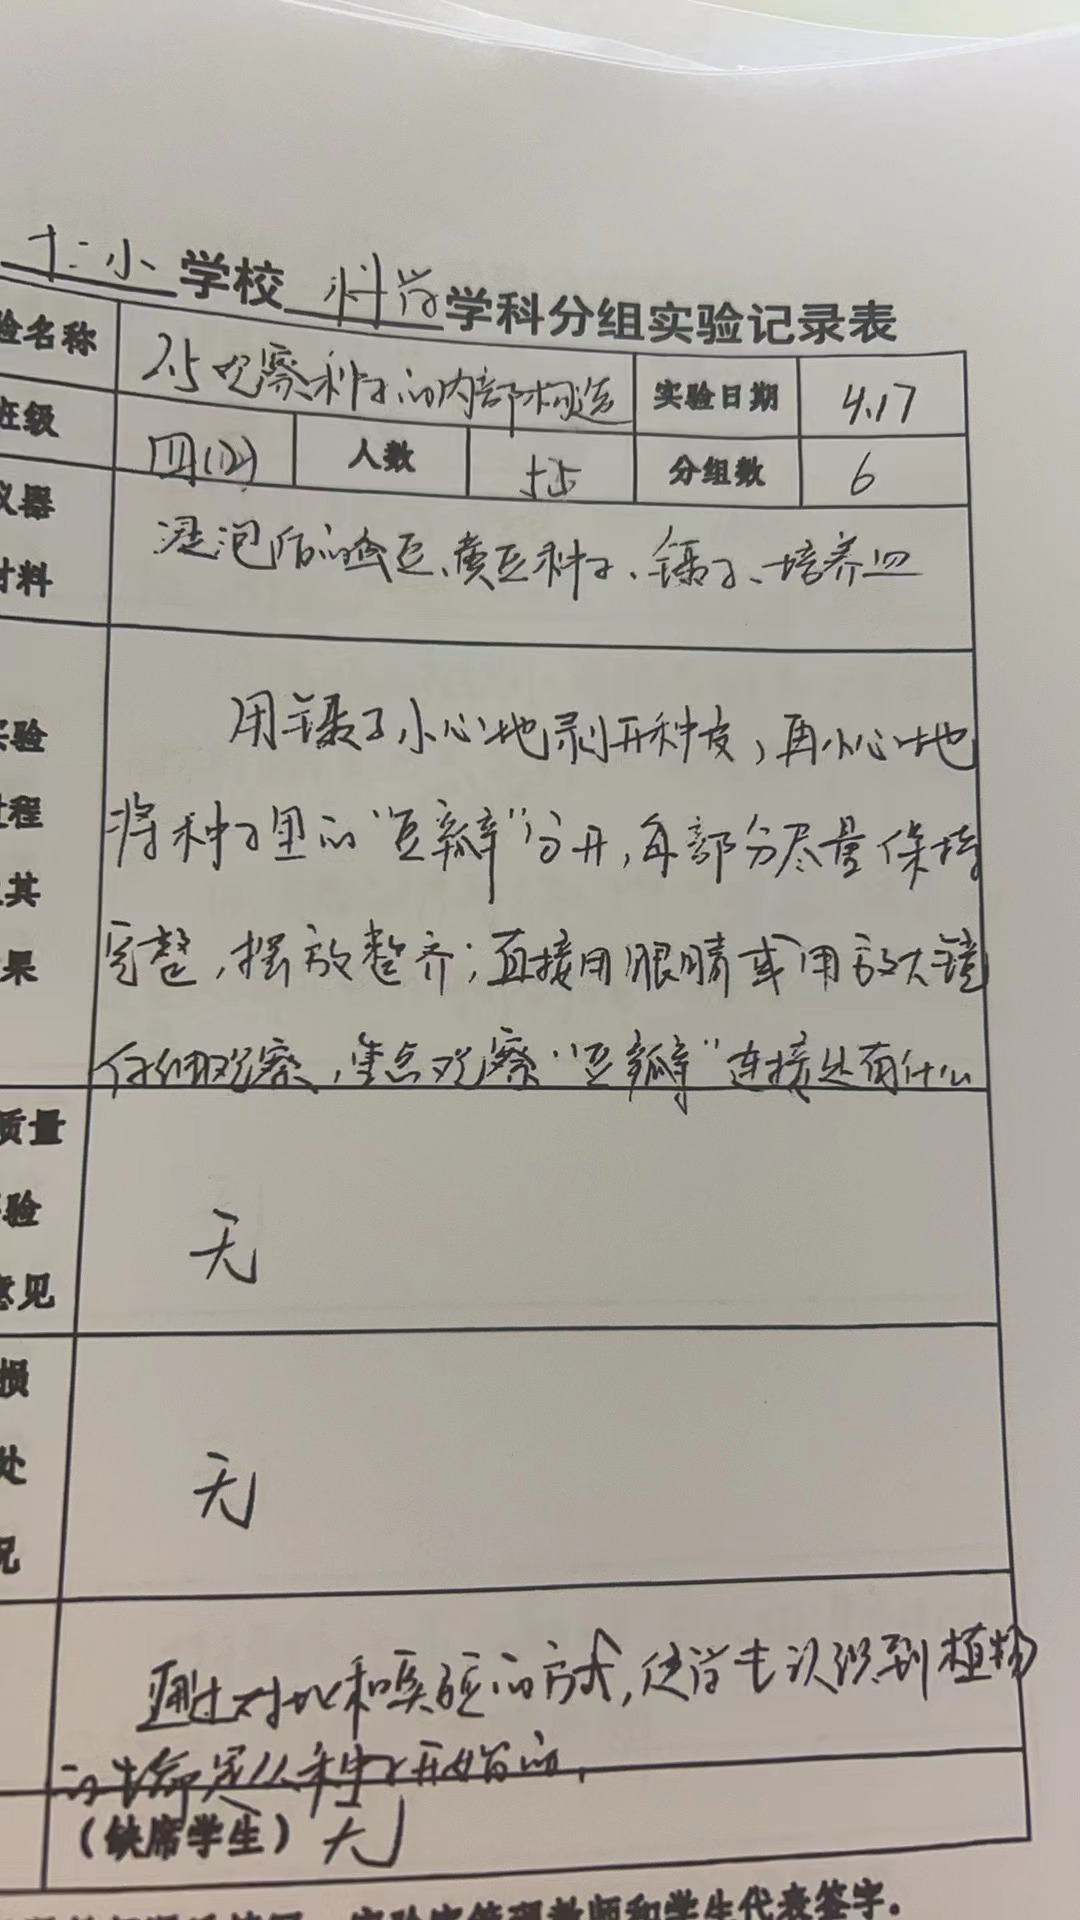 十二小学校科学学科分组实验记录表
验名称 2.5观察种子的内部构造 实验日期 4.17
班级 四(12) 人数 55 分组数 6
仪器 浸泡后的蚕豆、黄豆种子、镊子、培养皿
材料
实验 用镊子小心地剥开种皮，再小心地
过程 将种子里的“豆瓣”分开，每部分尽量保持
其 完整，摆放整齐；直接用眼睛或用放大镜
果 仔细观察，重点观察“豆瓣”连接处有什么
质量
验 无
意见
损
处 无
况
通过对比和实验的方式，使学生认识到植物
的生命是从种子开始的，
（缺席学生）无
实验室管理教师和学生代表签字。